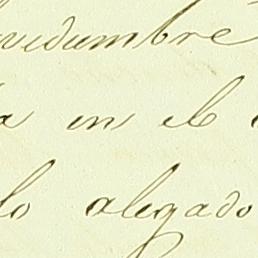 vidumbre
a en el
lo alegado